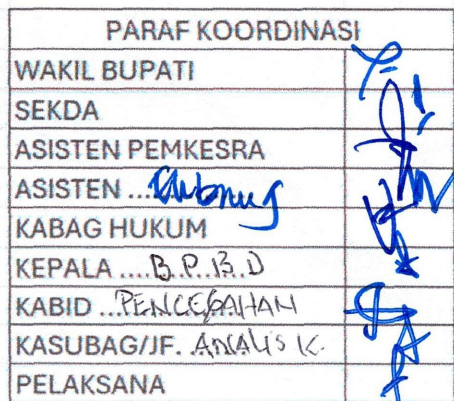 PARAF KOORDINASI
WAKIL BUPATI
SEKDA
ASISTEN PEMKESRA
ASISTEN ....
KABAG HUKUM
KEPALA ....B.P.B.D
KABID ...PENCEGAHAN
KASUBAG/JF. ANALIS K.
PELAKSANA